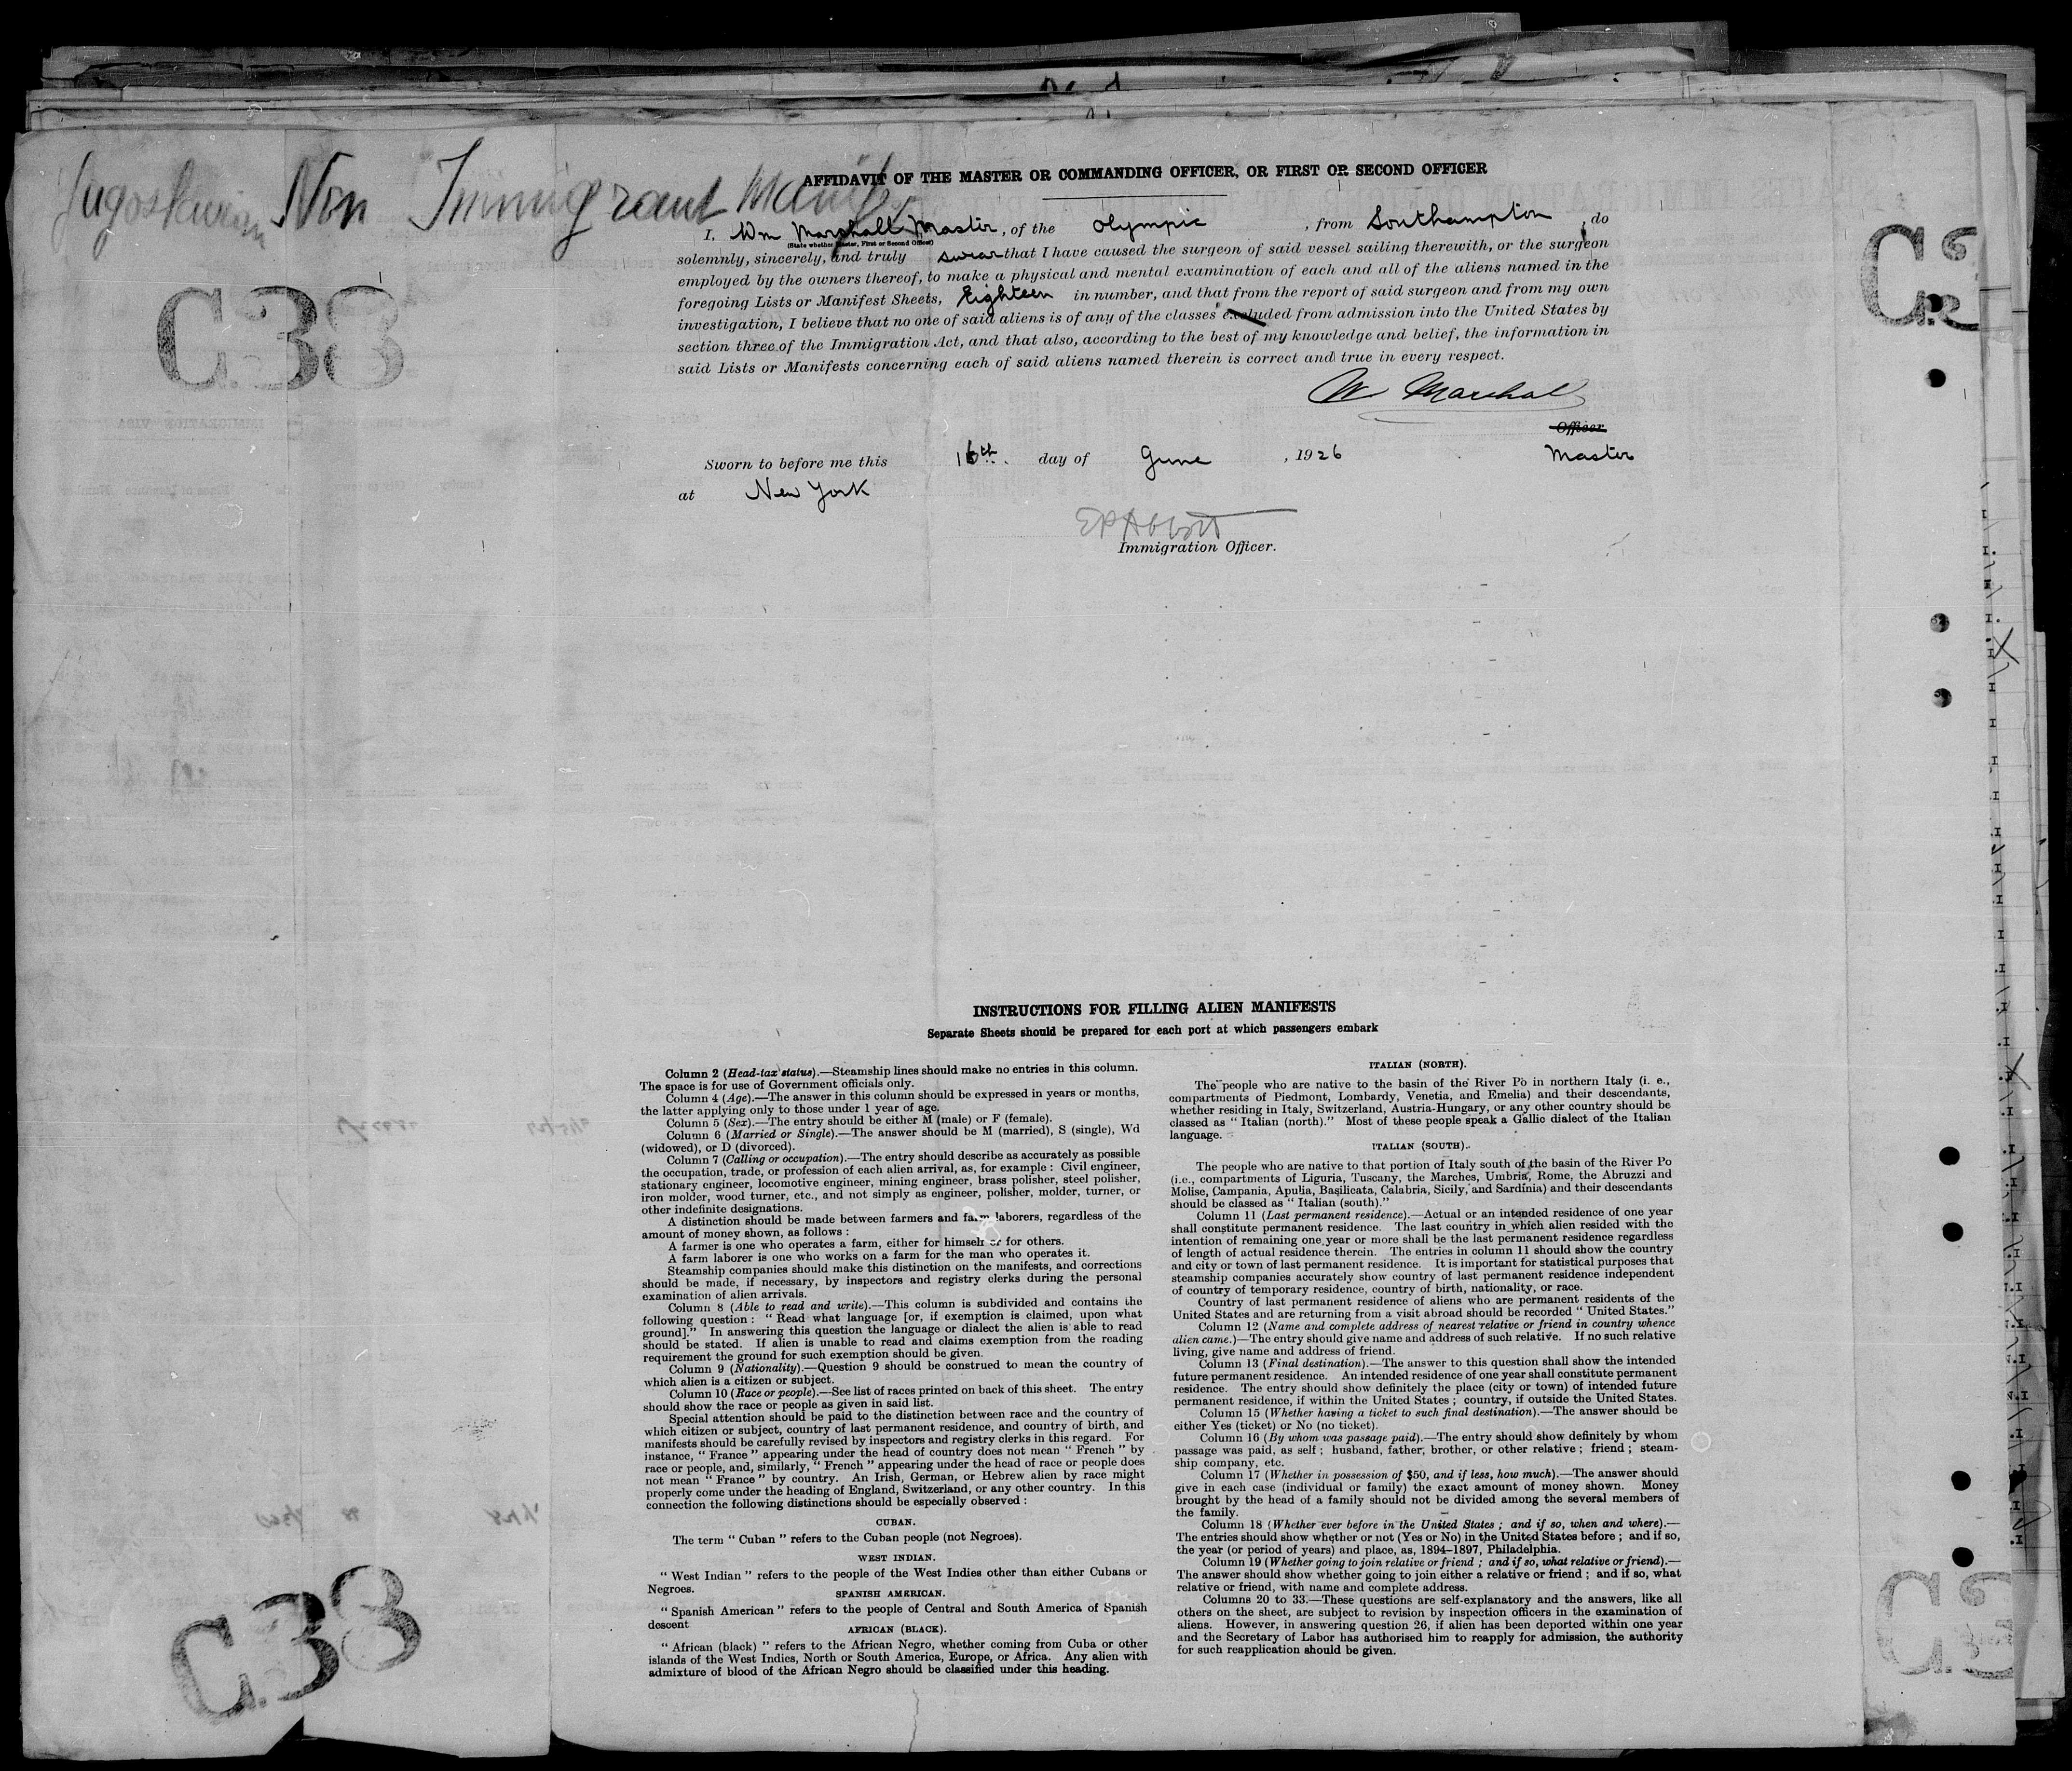 Jugoslavian Non Immigrant Manif
AFFIDAVIT OF THE MASTER OR COMMANDING OFFICER, OR FIRST OR SECOND OFFICER
I, Wm Marshall Master, of the Olympic, from Southampton, do
(State whether Master, First or Second Officer)
solemnly, sincerely, and truly swear that I have caused the surgeon of said vessel sailing therewith, or the surgeon
employed by the owners thereof, to make a physical and mental examination of each and all of the aliens named in the
foregoing Lists or Manifest Sheets, Eighteen in number, and that from the report of said surgeon and from my own
investigation, I believe that no one of said aliens is of any of the classes excluded from admission into the United States by
section three of the Immigration Act, and that also, according to the best of my knowledge and belief, the information in
said Lists or Manifests concerning each of said aliens named therein is correct and true in every respect.
G38
W Marshall
Officer
Sworn to before me this 16th. day of June, 1926 Master
at New York
Immigration Officer.
INSTRUCTIONS FOR FILLING ALIEN MANIFESTS
Separate Sheets should be prepared for each port at which passengers embark
Column 2 (Head-tax status).—Steamship lines should make no entries in this column.
The space is for use of Government officials only.
Column 4 (Age).—The answer in this column should be expressed in years or months,
the latter applying only to those under 1 year of age.
Column 5 (Sex).—The entry should be either M (male) or F (female).
Column 6 (Married or Single).—The answer should be M (married), S (single), Wd
(widowed), or D (divorced).
Column 7 (Calling or occupation).—The entry should describe as accurately as possible
the occupation, trade, or profession of each alien arrival, as, for example : Civil engineer,
stationary engineer, locomotive engineer, mining engineer, brass polisher, steel polisher,
iron molder, wood turner, etc., and not simply as engineer, polisher, molder, turner, or
other indefinite designations.
A distinction should be made between farmers and farm laborers, regardless of the
amount of money shown, as follows :
A farmer is one who operates a farm, either for himself or for others.
A farm laborer is one who works on a farm for the man who operates it.
Steamship companies should make this distinction on the manifests, and corrections
should be made, if necessary, by inspectors and registry clerks during the personal
examination of alien arrivals.
Column 8 (Able to read and write).—This column is subdivided and contains the
following question : “ Read what language [or, if exemption is claimed, upon what
ground].” In answering this question the language or dialect the alien is able to read
should be stated. If alien is unable to read and claims exemption from the reading
requirement the ground for such exemption should be given.
Column 9 (Nationality).—Question 9 should be construed to mean the country of
which alien is a citizen or subject.
Column 10 (Race or people).—See list of races printed on back of this sheet. The entry
should show the race or people as given in said list.
Special attention should be paid to the distinction between race and the country of
which citizen or subject, country of last permanent residence, and country of birth, and
manifests should be carefully revised by inspectors and registry clerks in this regard. For
instance, “ France ” appearing under the head of country does not mean “ French ” by
race or people, and, similarly, “ French ” appearing under the head of race or people does
not mean “ France ” by country. An Irish, German, or Hebrew alien by race might
properly come under the heading of England, Switzerland, or any other country. In this
connection the following distinctions should be especially observed :
CUBAN.
The term “ Cuban ” refers to the Cuban people (not Negroes).
WEST INDIAN.
“ West Indian ” refers to the people of the West Indies other than either Cubans or
Negroes.
SPANISH AMERICAN.
“ Spanish American ” refers to the people of Central and South America of Spanish
descent
AFRICAN (BLACK).
“ African (black) ” refers to the African Negro, whether coming from Cuba or other
islands of the West Indies, North or South America, Europe, or Africa. Any alien with
admixture of blood of the African Negro should be classified under this heading.
ITALIAN (NORTH).
The people who are native to the basin of the River Po in northern Italy (i. e.,
compartments of Piedmont, Lombardy, Venetia, and Emelia) and their descendants,
whether residing in Italy, Switzerland, Austria-Hungary, or any other country should be
classed as “ Italian (north).” Most of these people speak a Gallic dialect of the Italian
language.
ITALIAN (SOUTH).
The people who are native to that portion of Italy south of the basin of the River Po
(i.e., compartments of Liguria, Tuscany, the Marches, Umbria, Rome, the Abruzzi and
Molise, Campania, Apulia, Basilicata, Calabria, Sicily, and Sardinia) and their descendants
should be classed as “ Italian (south).”
Column 11 (Last permanent residence).—Actual or an intended residence of one year
shall constitute permanent residence. The last country in which alien resided with the
intention of remaining one year or more shall be the last permanent residence regardless
of length of actual residence therein. The entries in column 11 should show the country
and city or town of last permanent residence. It is important for statistical purposes that
steamship companies accurately show country of last permanent residence independent
of country of temporary residence, country of birth, nationality, or race.
Country of last permanent residence of aliens who are permanent residents of the
United States and are returning from a visit abroad should be recorded “ United States.”
Column 12 (Name and complete address of nearest relative or friend in country whence
alien came.)—The entry should give name and address of such relative. If no such relative
living, give name and address of friend.
Column 13 (Final destination).—The answer to this question shall show the intended
future permanent residence. An intended residence of one year shall constitute permanent
residence. The entry should show definitely the place (city or town) of intended future
permanent residence, if within the United States ; country, if outside the United States.
Column 15 (Whether having a ticket to such final destination).—The answer should be
either Yes (ticket) or No (no ticket).
Column 16 (By whom was passage paid).—The entry should show definitely by whom
passage was paid, as self ; husband, father, brother, or other relative ; friend ; steam-
ship company, etc.
Column 17 (Whether in possession of $50, and if less, how much).—The answer should
give in each case (individual or family) the exact amount of money shown. Money
brought by the head of a family should not be divided among the several members of
the family.
Column 18 (Whether ever before in the United States ; and if so, when and where).—
The entries should show whether or not (Yes or No) in the United States before ; and if so,
the year (or period of years) and place, as, 1894–1897, Philadelphia.
Column 19 (Whether going to join relative or friend ; and if so, what relative or friend).—
The answer should show whether going to join either a relative or friend ; and if so, what
relative or friend, with name and complete address.
Columns 20 to 33.—These questions are self-explanatory and the answers, like all
others on the sheet, are subject to revision by inspection officers in the examination of
aliens. However, in answering question 26, if alien has been deported within one year
and the Secretary of Labor has authorised him to reapply for admission, the authority
for such reapplication should be given.
G.38